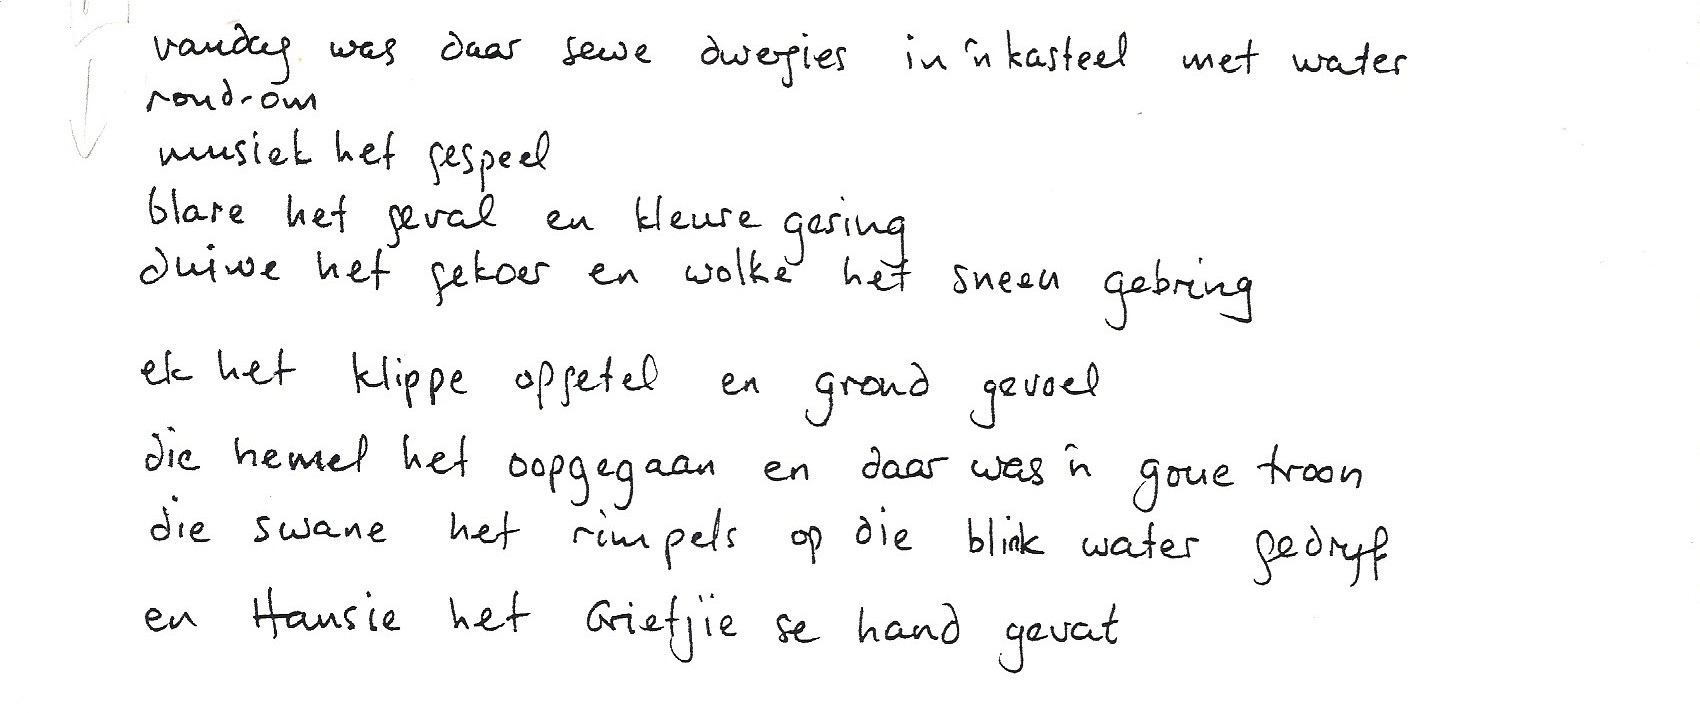 vandag was daar sewe dwergies in 'n kasteel met water
rond-om
musiek het gespeel
blare het geval en kleure gesing
duiwe het gekoer en wolke het sneeu gebring
ek het klippe opgetel en grond gevoel
die hemel het oopgegaan en daar was 'n goue troon
die swane het rimpels op die blink water gedryf
en Hansie het Grietjie se hand gevat